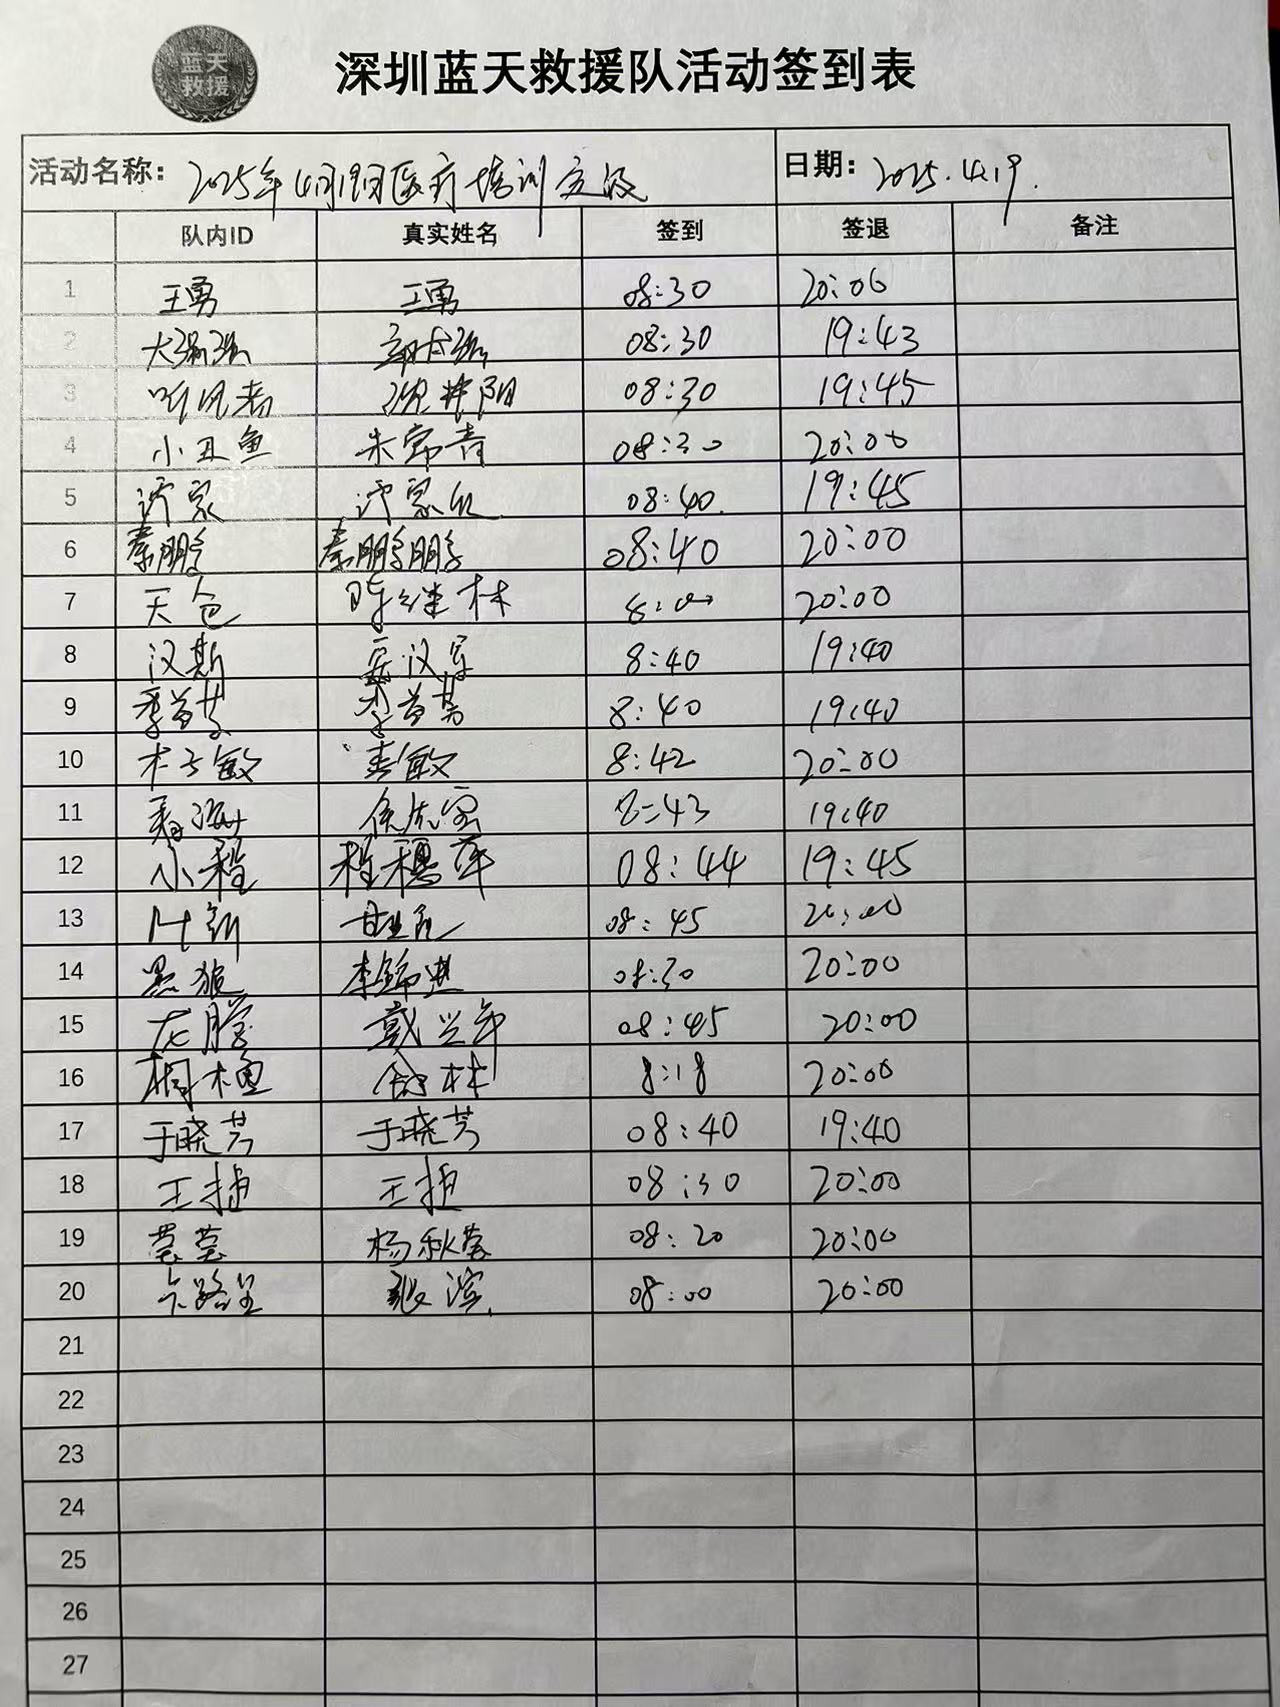 蓝天
救援
深圳蓝天救援队活动签到表
活动名称: 2025年4月19日医疗培训定级 日期: 2025.4.19.
队内ID 真实姓名 签到 签退 备注
1 王勇 王勇 08:30 20:06
2 大强强 08:30 19:43
3 听风者 08:30 19:45
4 小丑鱼 朱常青 08:30 20:00
5 许家 许家 08:40. 19:45
6 秦鹏 秦鹏鹏 08:40 20:00
7 天仓 继林 8:00 20:00
8 汉斯 8:40 19:40
9 李首芳 李首芳 8:40 19:40
10 木子敏 李敏 8:42 20:00
11 8:43 19:40
12 小程 程穗萍 08:44 19:45
13 叶剑 08:45 20:00
14 黑狼 李锦进 08:30 20:00
15 龙腾 戴兴年 08:45 20:00
16 林 8:18 20:00
17 于晓芳 于晓芳 08:40 19:40
18 王捷 王捷 08:30 20:00
19 莞莞 杨秋莞 08:20 20:00
20 卡路里 08:00 20:00
21
22
23
24
25
26
27